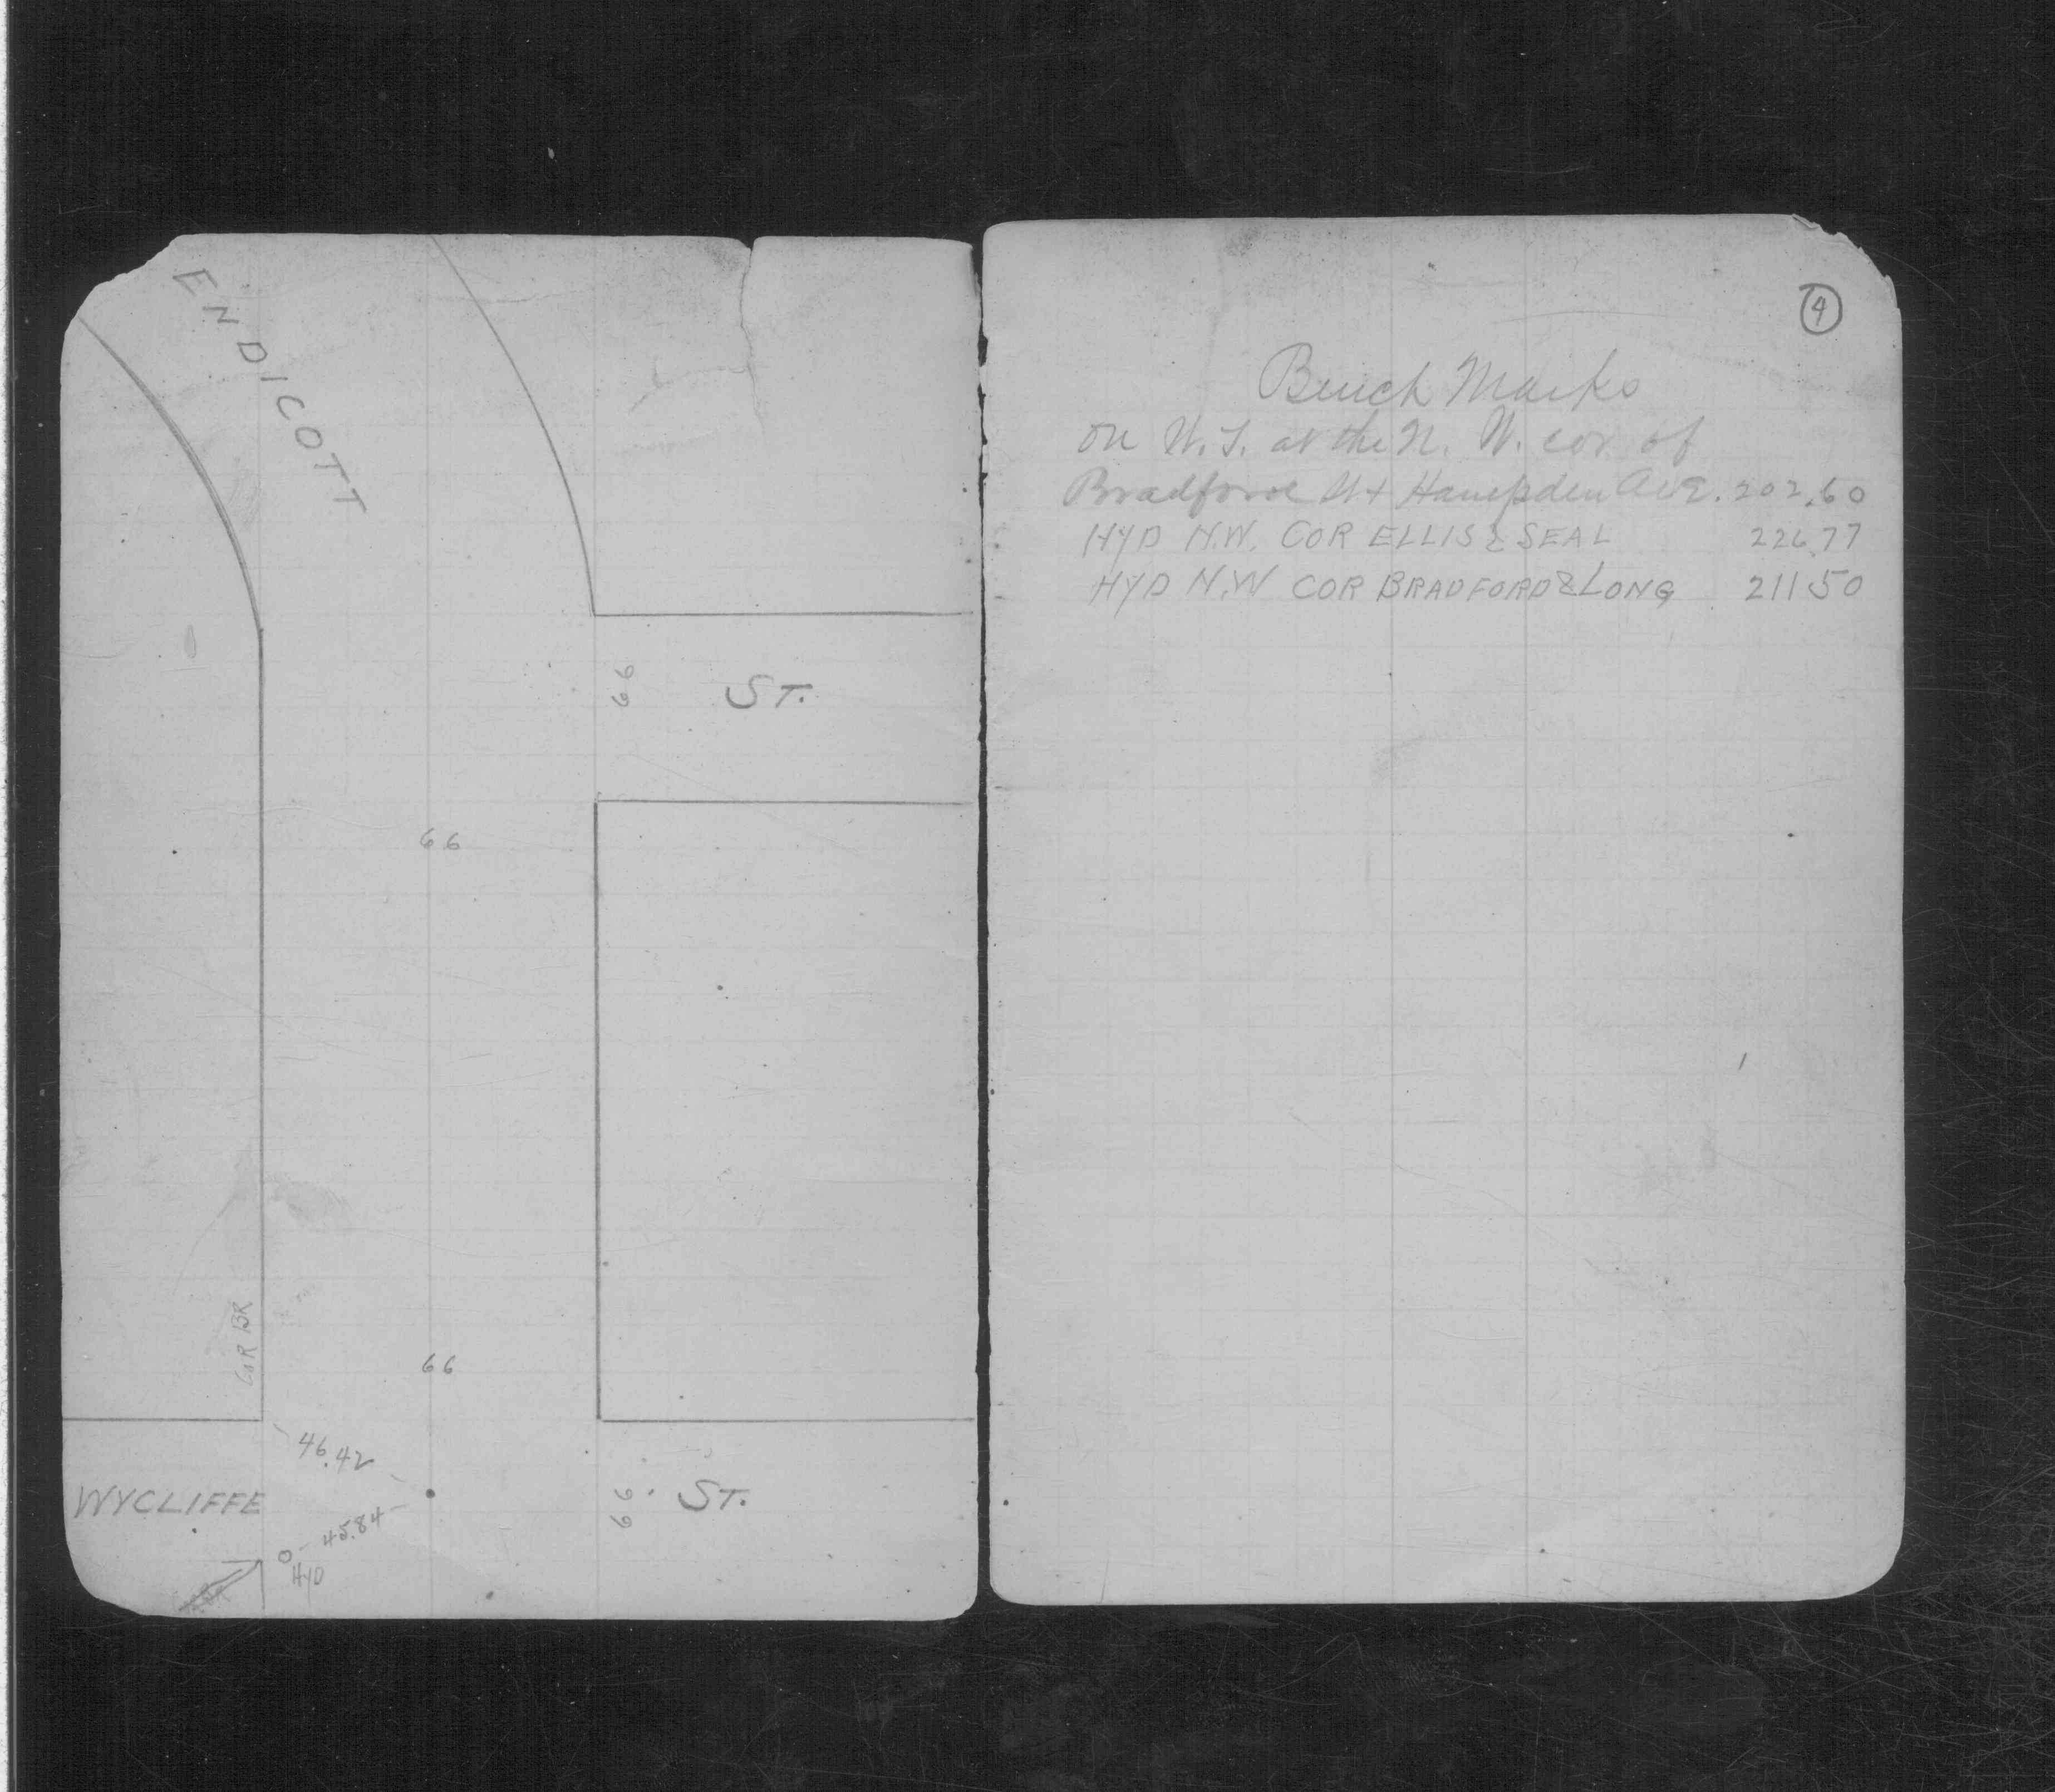 ENDICOTT
66
ST.
66
COR BR
66
46.42
WYCLIFFE
66
ST.
45.84
HYD
4
Bench Marks
on W. T. at the N. W. cor. of
Bradford St Hampden Ave. 202.60
HYD N.W. COR ELLIS & SEAL 226.77
HYD N.W COR BRADFORD & LONG 211 50